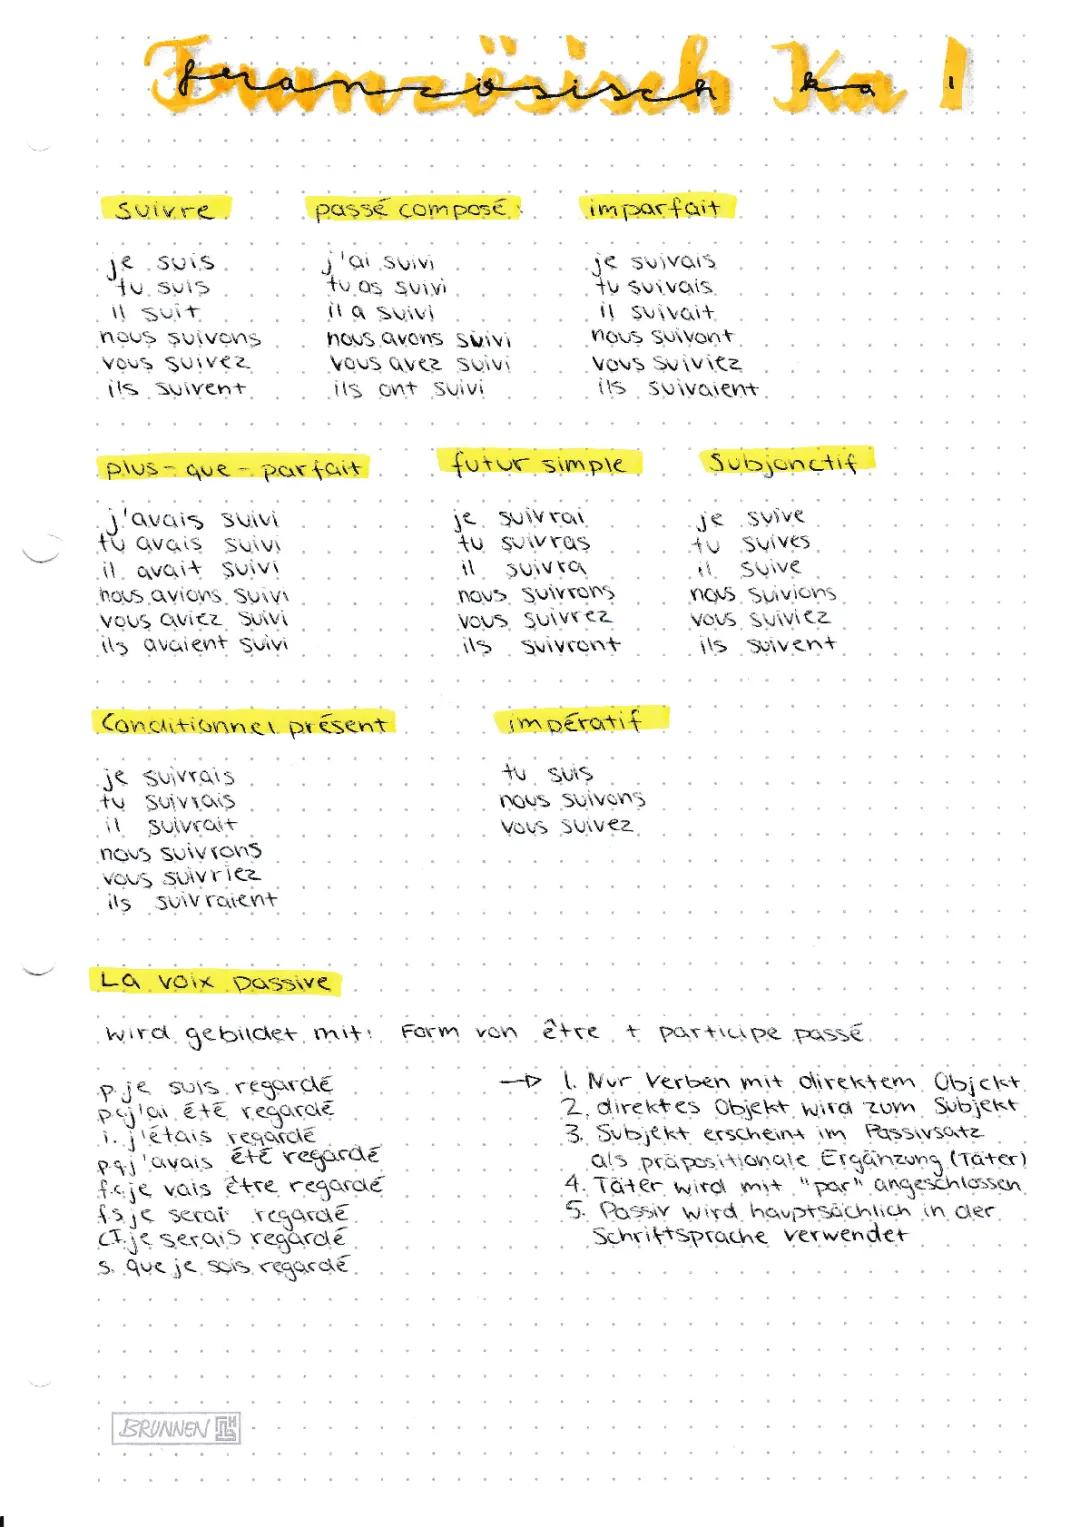 Französisch Ka 1
suivre
je suis
tu suis
il suit
nous suivons
vous suivez
ils suivent
passé composé
j'ai suivi
tu as suivi
il a suivi
nous avons suivi
vous avez suivi
ils ont suivi
imparfait
je suivais
tu suivais
il suivait
nous suivont
vous suiviez
ils suivaient
plus-que-parfait
j'avais suivi
tu avais suivi
il avait suivi
nous avions suivi
vous aviez suivi
ils avaient suivi
futur simple
je suivrai
tu suivras
il suivra
nous suivrons
vous suivrez
ils suivront
Subjonctif
je suive
tu suives
il suive
nous suivions
vous suiviez
ils suivent
Conditionnel présent
je suivrais
tu suivrais
il suivrait
nous suivrons
vous suivriez
ils suivraient
impératif
tu suis
nous suivons
vous suivez
La voix passive
wird gebildet mit: Form von être + participe passé
p. je suis regardé
pc j'ai été regardé
i. j'étais regardé
pqj'avais été regardé
f.c je vais être regardé
fs je serai regardé
CI je serais regardé
s. que je sois regardé
→ 1. Nur Verben mit direktem Objekt
2. direktes Objekt wird zum Subjekt
3. Subjekt erscheint im Passivsatz
als präpositionale Ergänzung (Täter)
4. Täter wird mit "par" angeschlossen
5. Passiv wird hauptsächlich in der
Schriftsprache verwendet
BRUNNEN